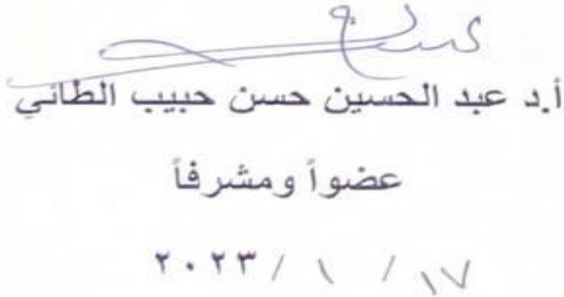 أ.د عبد الحسين حسن حبيب الطائي
عضواً ومشرفاً
١٧ / ١ / ٢٠٢٣